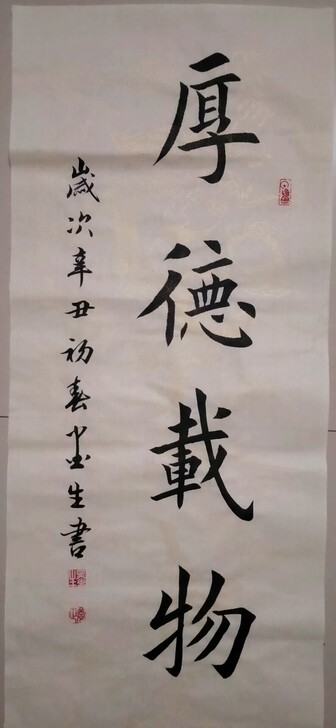 厚德載物
歲次辛丑初春
生書